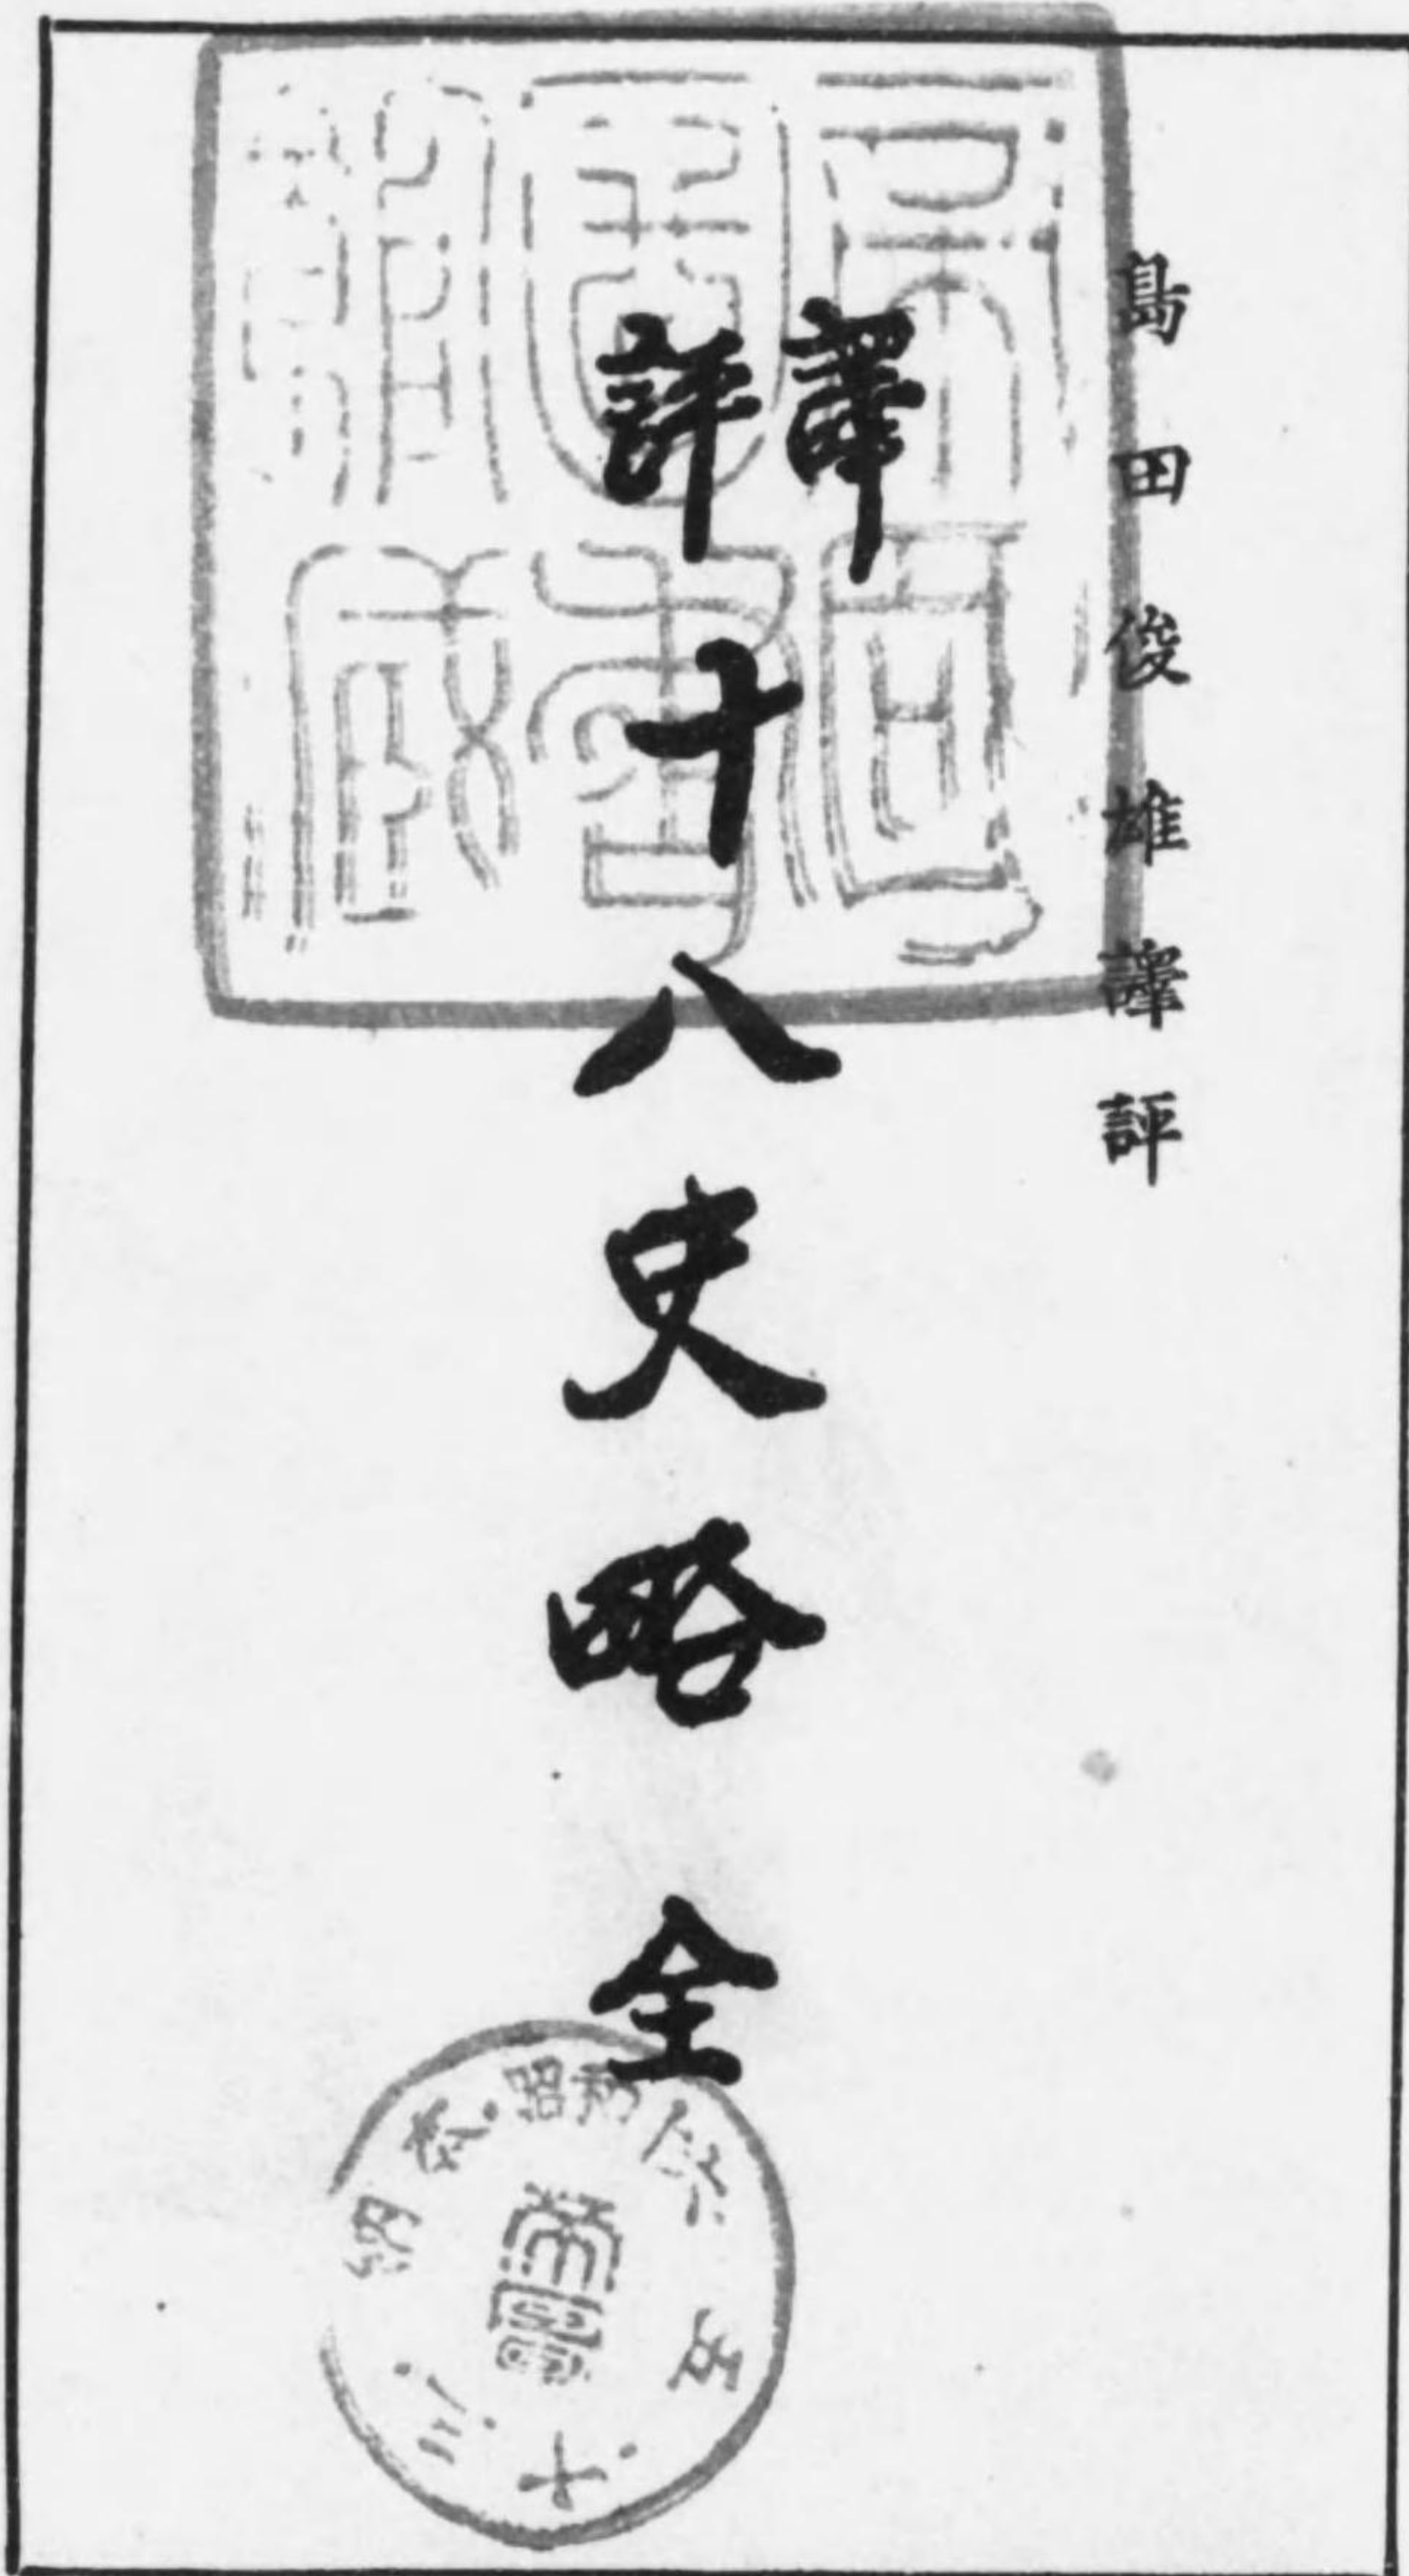 島田俊雄譯評
譯評
十八史略全
帝國圖書館藏
昭和
五
十三
帝圖